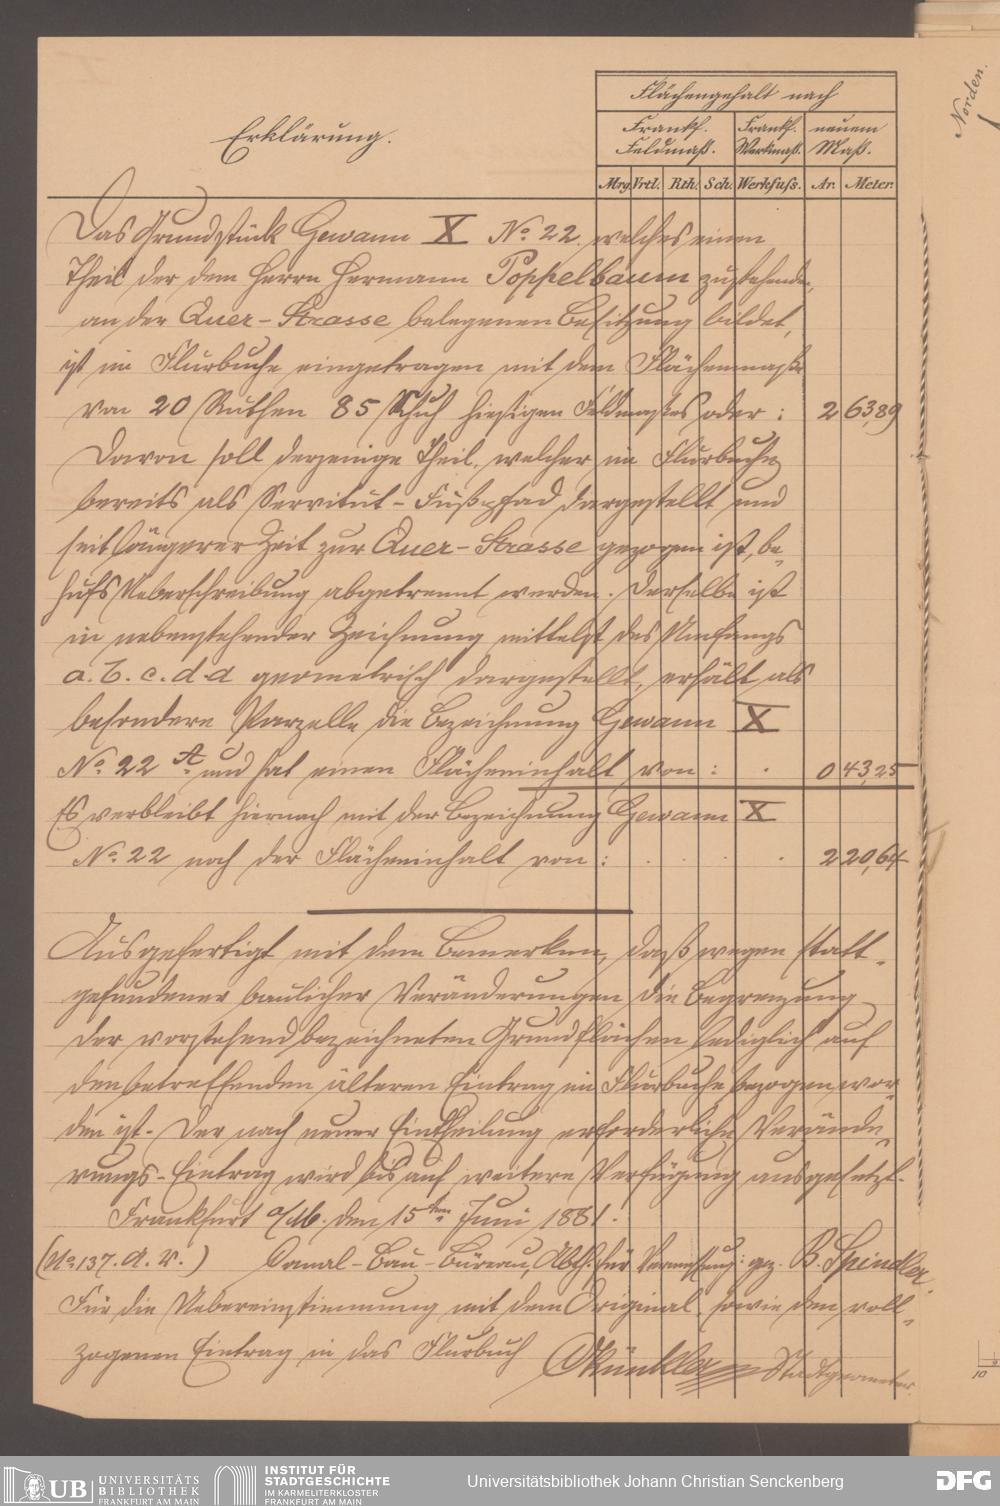 Flächengehalt nach
Erklärung.
Frankf. Feldmaß.
Frankf. Werkmaß.
neuem Maß.
Mrg. Vrtl. Rth. Sch. Werkfuss. Ar. Meter.
Das Grundstück Gewann X No. 22. welches einen
Theil der dem Herrn Hermann Poppelbaum zustehenden,
an der Quer-Strasse belegenen Besitzung bildet,
ist im Flurbuche eingetragen mit dem Flächenmaße
von 20 Ruthen 85 Schuh hiesigen Feldmaßes oder: 2 63,89
Davon soll derjenige Theil, welcher im Flurbuche
bereits als Servitut-Fuß-pfad dargestellt und
seit längerer Zeit zur Quer-Strasse gezogen ist, be-
hufs Ueberschreibung abgetrennt werden. Derselbe ist
in nebenstehender Zeichnung mittelst des Umfangs
a. b. c. d. a geometrisch dargestellt, erhält als
besondere Parzelle die Bezeichnung Gewann X
No. 22 A. und hat einen Flächeninhalt von: 0 43,25
Es verbleibt hiernach mit der Bezeichnung Gewann X
No. 22 noch der Flächeninhalt von: 2 20,64
Ausgefertigt mit dem Bemerken, daß wegen statt-
gefundener baulicher Veränderungen die Begrenzung
der vorstehend bezeichneten Grundflächen lediglich auf
den betreffenden älteren Eintrag im Flurbuche bezogen wor-
den ist. Der nach neuer Eintheilung erforderliche Verände-
rungs-Eintrag wird bis auf weitere Verfügung ausgesetzt.
Frankfurt a/M. den 15ten Juni 1881.
(No. 137. A. V.) Canal-Bau-Büreau, Abth. für Vermessung: gez. B. Spindler.
Für die Uebereinstimmung mit dem Original, sowie den voll-
zogenen Eintrag in das Flurbuch
Stadtgeometer.
Norden.
10
UB UNIVERSITÄTS BIBLIOTHEK FRANKFURT AM MAIN
INSTITUT FÜR STADTGESCHICHTE IM KARMELITERKLOSTER FRANKFURT AM MAIN
Universitätsbibliothek Johann Christian Senckenberg
DFG